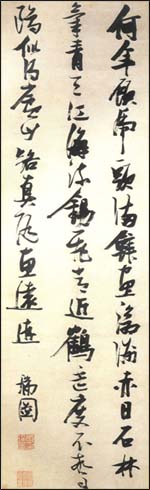 何年顧虎頭滿壁画滄洲赤日石林
氣青天江海流錫飛常近鶴杯度不驚
鷗似得廬山路真隨惠遠遊
瑞圖